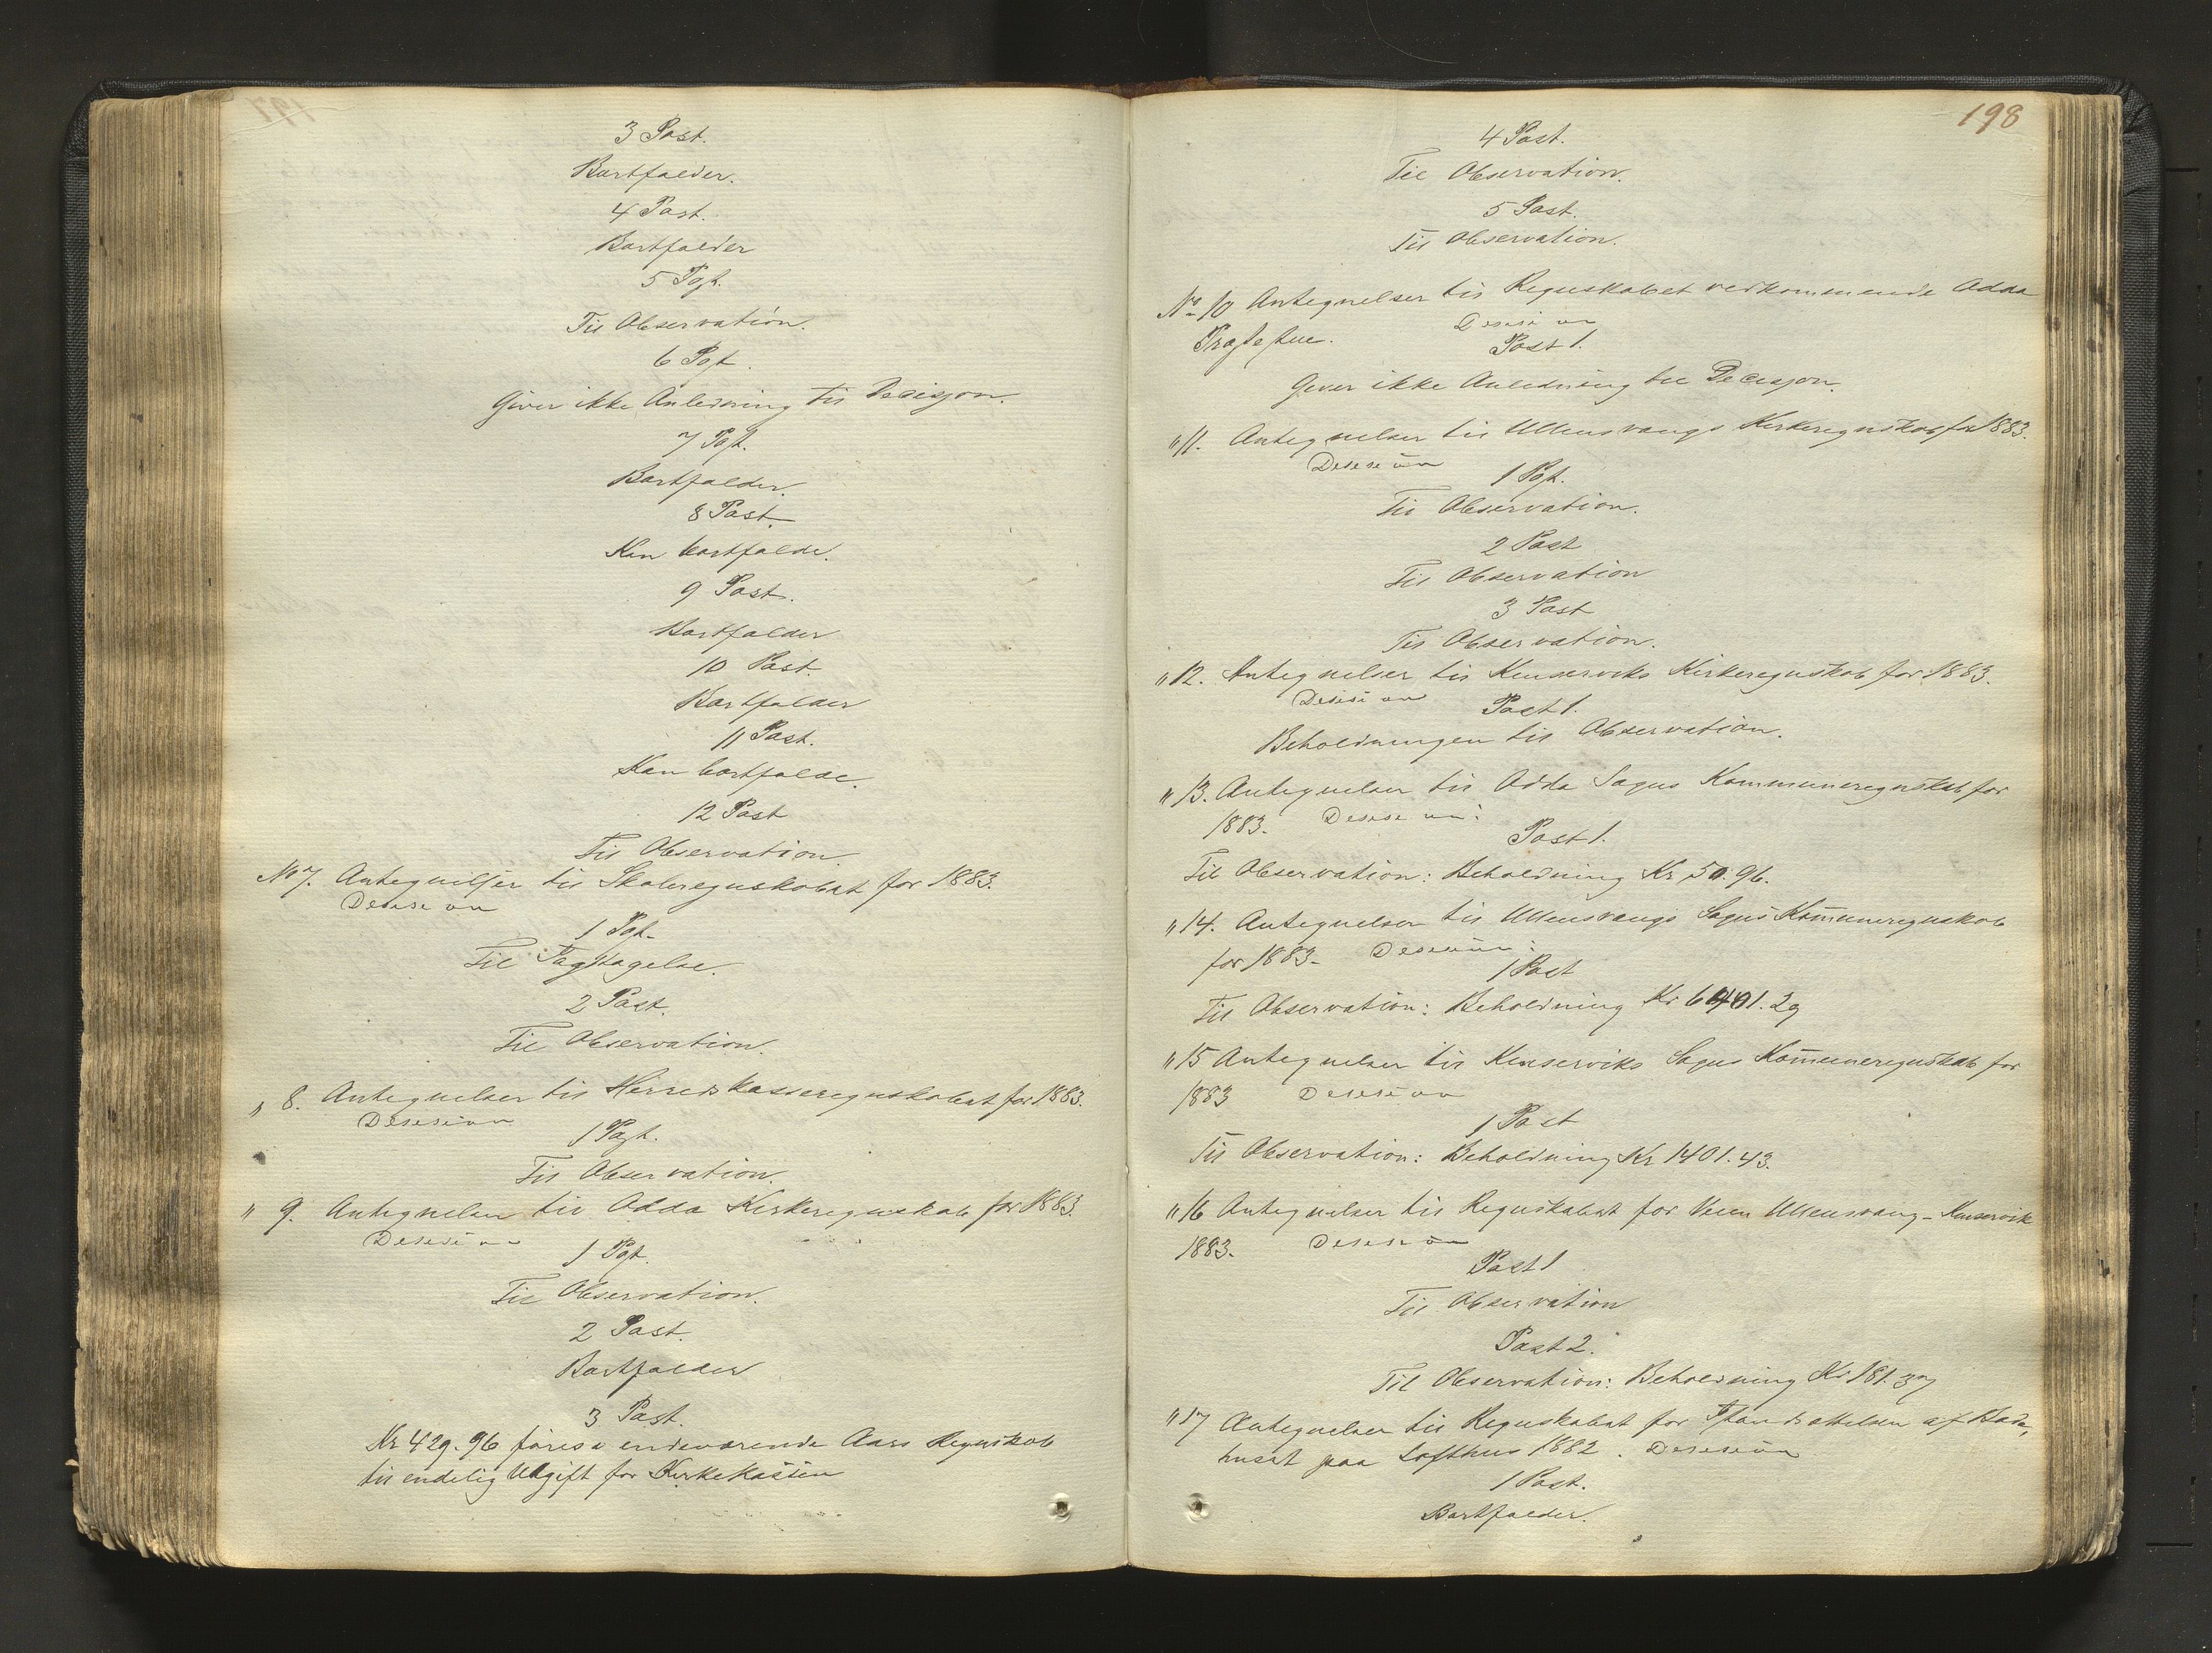 3 Post.
Bortfalder.
4 Post.
Bortfalder
5 Post.
Til Observation.
6 Post.
Giver ikke Anledning til Decisjon.
7 Post.
Bortfalder.
8 Post.
Kan bortfalde.
9 Post.
Bortfalder
10 Post.
Bortfalder
11 Post.
Kan bortfalde.
12 Post
Til Observation.
No 7. Antegnelser til Skoleregnskabet for 1883.
Desision
1 Post.
Til Iagttagelse.
2 Post.
Til Observation.
„ 8. Antegnelser til Herredskasseregnskabet for 1883.
Desision
1 Post.
Til Observation.
„ 9. Antegnelser til Odda Kirkeregnskab for 1883.
Desision
1 Post.
Til Observation.
2 Post.
Bortfalder
3 Post.
Kr 429.96 føres i endeværende Aars Regnskab
til endelig Udgift for Kirkekassen
198
4 Post.
Til Observation.
5 Post.
Til Observation.
No 10 Antegnelser til Regnskabet vedkommende Odda
Desision
Præstestue.
Post 1.
Giver ikke Anledning til Decisjon.
„ 11. Antegnelser til Ullensvangs Kirkeregnskab for 1883.
Desision
1 Post.
Til Observation.
2 Post
Til Observation
3 Post
Til Observation.
„ 12. Antegnelser til Kinserviks Kirkeregnskab for 1883.
Desision
Post 1.
Beholdningen til Observation.
„ 13. Antegnelser til Odda Sogns Kommuneregnskab for
1883. Desision:
Post 1.
Til Observation: Beholdning Kr 50.96.
„ 14. Antegnelser til Ullensvangs Sogns Kom̅uneregnskab
for 1883. Desision:
1 Post
Til Observation: Beholdning Kr 6401.29
„ 15 Antegnelser til Kinserviks Sogns Kom̅uneregnskab for
1883 Desision
1 Post
Til Observation: Beholdning Kr 1401.43.
„ 16 Antegnelser til Regnskabet for Veien Ullensvang-Kinservik
1883. Desision
Post 1
Til Observation
Post 2.
Til Observation: Beholdning Kr 181.37
„ 17 Antegnelser til Regnskabet for Istandsættelsen af Bade-
huset paa Lofthus 1882. Desision
1 Post.
Bortfalder.